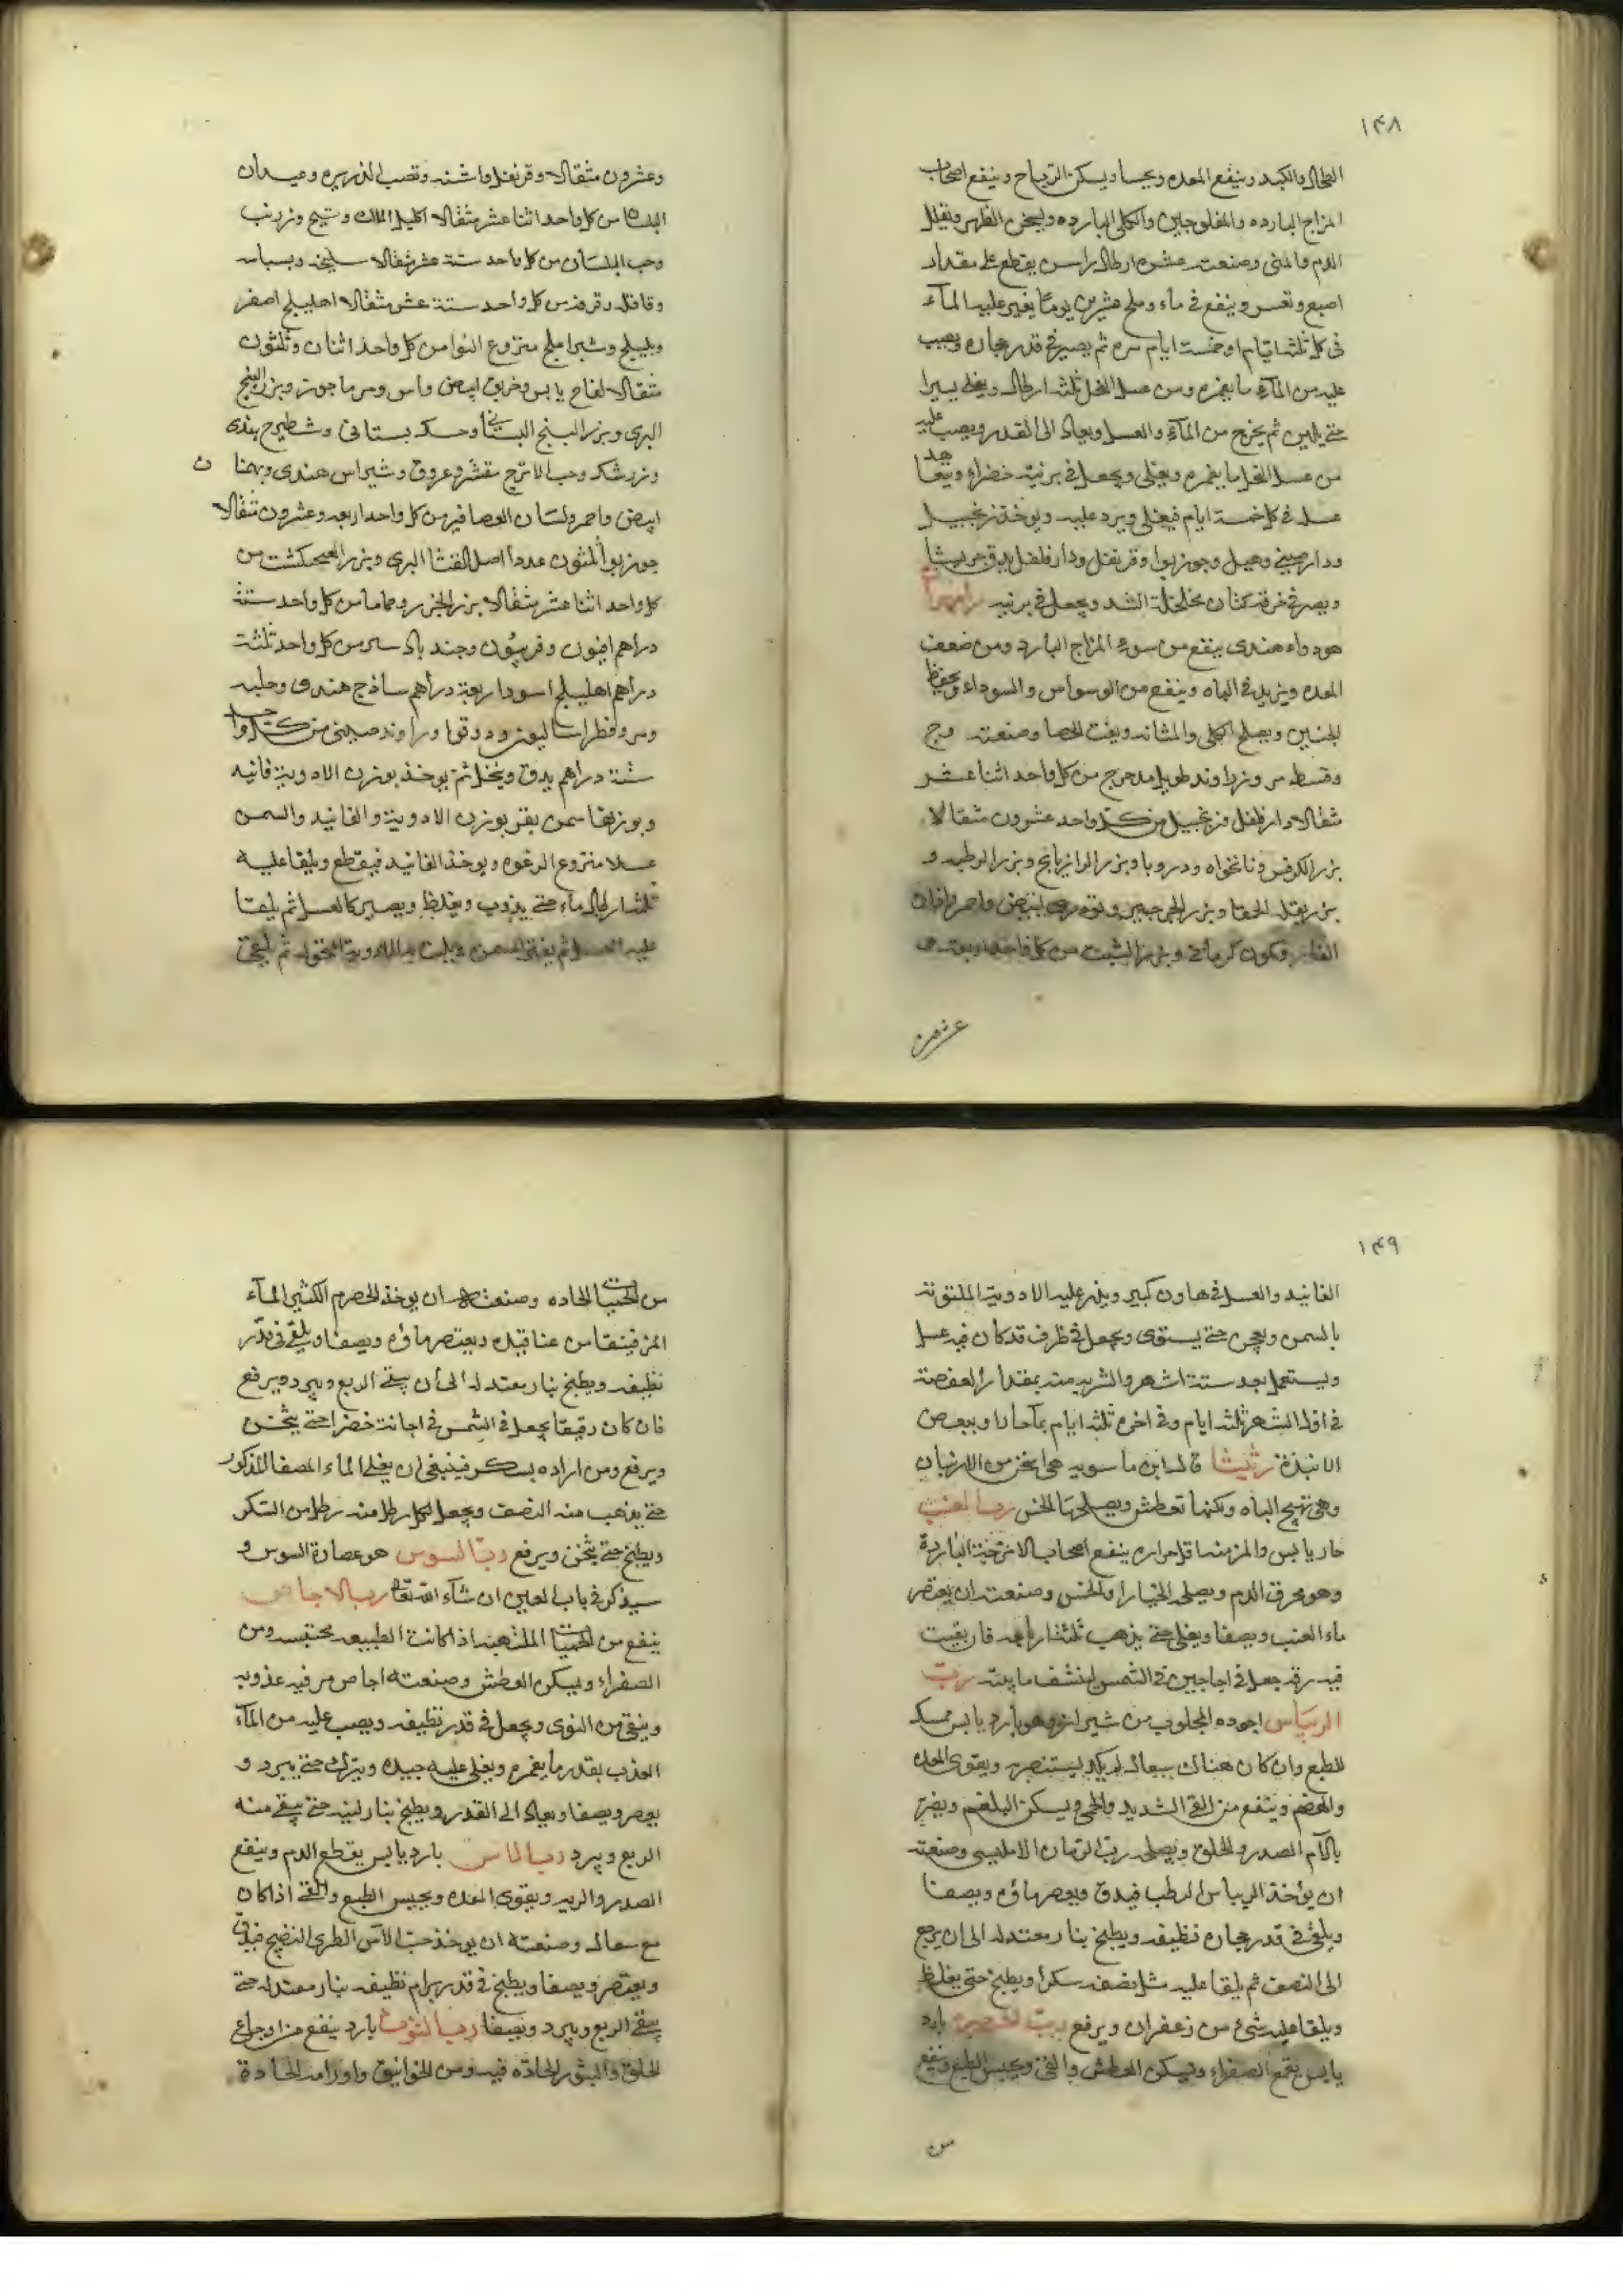 ١٤٨
الطحال والكبد وينفع المعده ويحبسا ويسكن الرياح وينفع اصحاب
المزاج البارده والمفلوجين والكلى البارده ويسخن الظهر ويقلل
الدم والمنى وصنعته عشره ارطال راسن يقطع على مقدار
اصبع وتغسل وينقع فى ماء وملح عشرين يوما يغير عليه المآء
فى كل ثلثه ايام او خمسة ايام مره ثم يصير فى قدر حجاره ويصب
عليه من المآء ما يغمره ومن عسل النحل ثلثه ارطال ويغلى يسيرا
حتى يلين ثم يخرج من المآء والعسل ويعاد الى القدر ويصب عليه
من عسل النحل ما يغمره ويغلى ويجعل فى برنيه خضراء ويتعاهد
عسله فى كل خمسة ايام فيغلى ويرد عليه ويوخذ زنجبيل
ودارصينى وهيل وجوزبوا وقرنفل ودارفلفل يدق جريشا
ويصر فى خرقة كتان مخلخلة الشد ويجعل فى برنيه رامهران
هو دواء هندى ينفع من سوء المزاج البارد ومن ضعف
المعده ويزيد فى الباه وينفع من الوسواس والسوداء ويحفظ
الجنين ويصلح الكلى والمثانه ويفت الحصا وصنعته وج
وقسط مر وزراوند طويل مدحرج من كل واحد اثنا عشر
مثقالا دارفلفل وزنجبيل من كل واحد عشرون مثقالا
بزر الكرفس ونانخواه ودروبا وبزر الرازيانج وبزر الرطبه و
بزر بقلة الحمقا وبزر الجرجير وتودرى ابيض واحمر واذان
الفار وكمون كرمانى وبزر الشبت من كل واحد اربعة
عشرون
وعشرون مثقالا وقرنفل واشنه وقصب الذريره وعيدان
البلسان من كل واحد اثنا عشر مثقالا اكليل الملك وشيح وزرنب
وحب البلسان من كل واحد ستة عشر مثقالا سليخه وبسباسه
وقاقله وقرفه من كل واحد ستة عشر مثقالا اهليلج اصفر
وبليلج وشير املج منزوع النوا من كل واحد اثنان وثلثون
مثقالا لفاح يابس وخربق ابيض واس ومرماحوز وبزر البنج
البرى وبزر البنج البستانى وحسك بستانى وشطيرج هندى
وزرشك وحب الاترج مقشر وعروق وشيراس هندى وبهمنان
ابيض واحمر ولسان العصافير من كل واحد اربعه وعشرون مثقالا
جوزبوا ثلثون عددا اصل القثا البرى وبزر الفنجنكشت من
كل واحد اثنا عشر مثقالا بزر الجزر وحماما من كل واحد ستة
دراهم افيون وفربيون وجندبادستر من كل واحد ثلثة
دراهم اهليلج اسود اربعة دراهم ساذج هندى وحلبه
ومرو فطراساليون ودوقوا وراوند صينى من كل واحد
ستة دراهم يدق وينخل ثم يوخذ بوزن الادوية فانيد
وبوزنها سمن بقر بوزن الادوية والفانيد والسمن
عسلا منزوع الرغوه ويوخذ الفانيد فيقطع ويلقا عليه
ثلثه ارطال ماء حتى يذوب ويغلظ ويصير كالعسل ثم يلقا
عليه العسل ثم يغلى السمن ويلت به الادوية المنخوله ثم يلقى
١٤٩
الفانيد والعسل فى هاون كبير ويذر عليه الادوية الملتوتة
بالسمن ويعجن حتى يستوى ويجعل فى ظرف قد كان فيه عسل
ويستعمل بعد ستة اشهر والشربه منه بمقدار العفصة
فى اول الشهر ثلثه ايام وفى اخره ثلثه ايام بمآ حار او ببعض
الانبذة رثيثا قال ابن ماسويه هى اسخن من الاربيان
وهى تهيج الباه ولكنها تعطش ويصلحها الخس رب العنب
حار يابس والمز منه اقل حراره ينفع اصحاب الامزجة البارده
وهو محرق الدم ويصلحه الخيار او الخس وصنعته ان يعتصر
ماء العنب ويصفا ويغلى حتى يذهب ثلثة ارباعه فان بقيت
فيه رقه جعل فى اجاجين فى الشمس لينشف مائيته رب
الريباس اجوده المجلوب من شيراز وهو بارد يابس ممسك
للطبع وان كان هناك سعال لم يكد يستضر به ويقوى المعده
والهضم وينفع من القى الشديد والحمى ويسكن البلغم ويضر
بآلام الصدر والحلق ويصلحه رب الرمان الامليسى وصنعته
ان يؤخذ الريباس الرطب فيدق ويعصر ماؤه ويصفا
ويلقى فى قدر حجاره نظيفه ويطبخ بنار معتدله الى ان يرجع
الى النصف ثم يلقا عليه مثل نصفه سكرا ويطبخ حتى يغلظ
ويلقا عليه شئ من زعفران ويرفع رب الحصرم بارد
يابس يقمع الصفراء ويسكن العطش والقئ ويحبس الطبع وينفع
من
من الحميات الحاده وصنعته ان يوخذ الحصرم الكثير المآء
المز فينقا من عناقيده ويعتصر ماؤه ويصفا ويلقى فى قدر
نظيفه ويطبخ بنار معتدله الى أن يبقى الربع ويبرد ويرفع
فان كان رقيقا يجعل فى الشمس فى اجانة خضرا حتى يثخن
ويرفع ومن اراده بسكر فينبغى ان يغلى الماء المصفا المذكور
حتى يذهب منه النصف ويجعل لكل رطل منه رطل من السكر
ويطبخ حتى يثخن ويرفع رب السوس هو عصارة السوس و
سيذكر فى باب العين ان شآء الله تعا رب الاجاص
ينفع من الحميات الملتهبه اذا كانت الطبيعه محتبسه ومن
الصفراء ويسكن العطش وصنعته اجاص مز فيه عذوبه
وينقى من النوى ويجعل فى قدر نظيفه ويصب عليه من المآء
العذب بقدر ما يغمره ويغلى عليه جيده ويترك حتى يبرد و
يعصر ويصفا ويعاد الى القدر ويطبخ بنار لينه حتى يبقى منه
الربع ويبرد رب الاس بارد يابس يقطع الدم وينفع
الصدر والريه ويقوى المعده ويحبس الطبع والقئ اذا كان
مع سعال وصنعته ان يوخذ حب الآس الطرى النضيج فيدق
ويعتصر ويصفا ويطبخ فى قدر برام نظيفه بنار معتدله حتى
يبقى الربع ويبرد ويصفا رب التوث بارد ينفع من اوجاع
الحلق والبثور الحاده فيه ومن الخوانيق واورامه الحادة